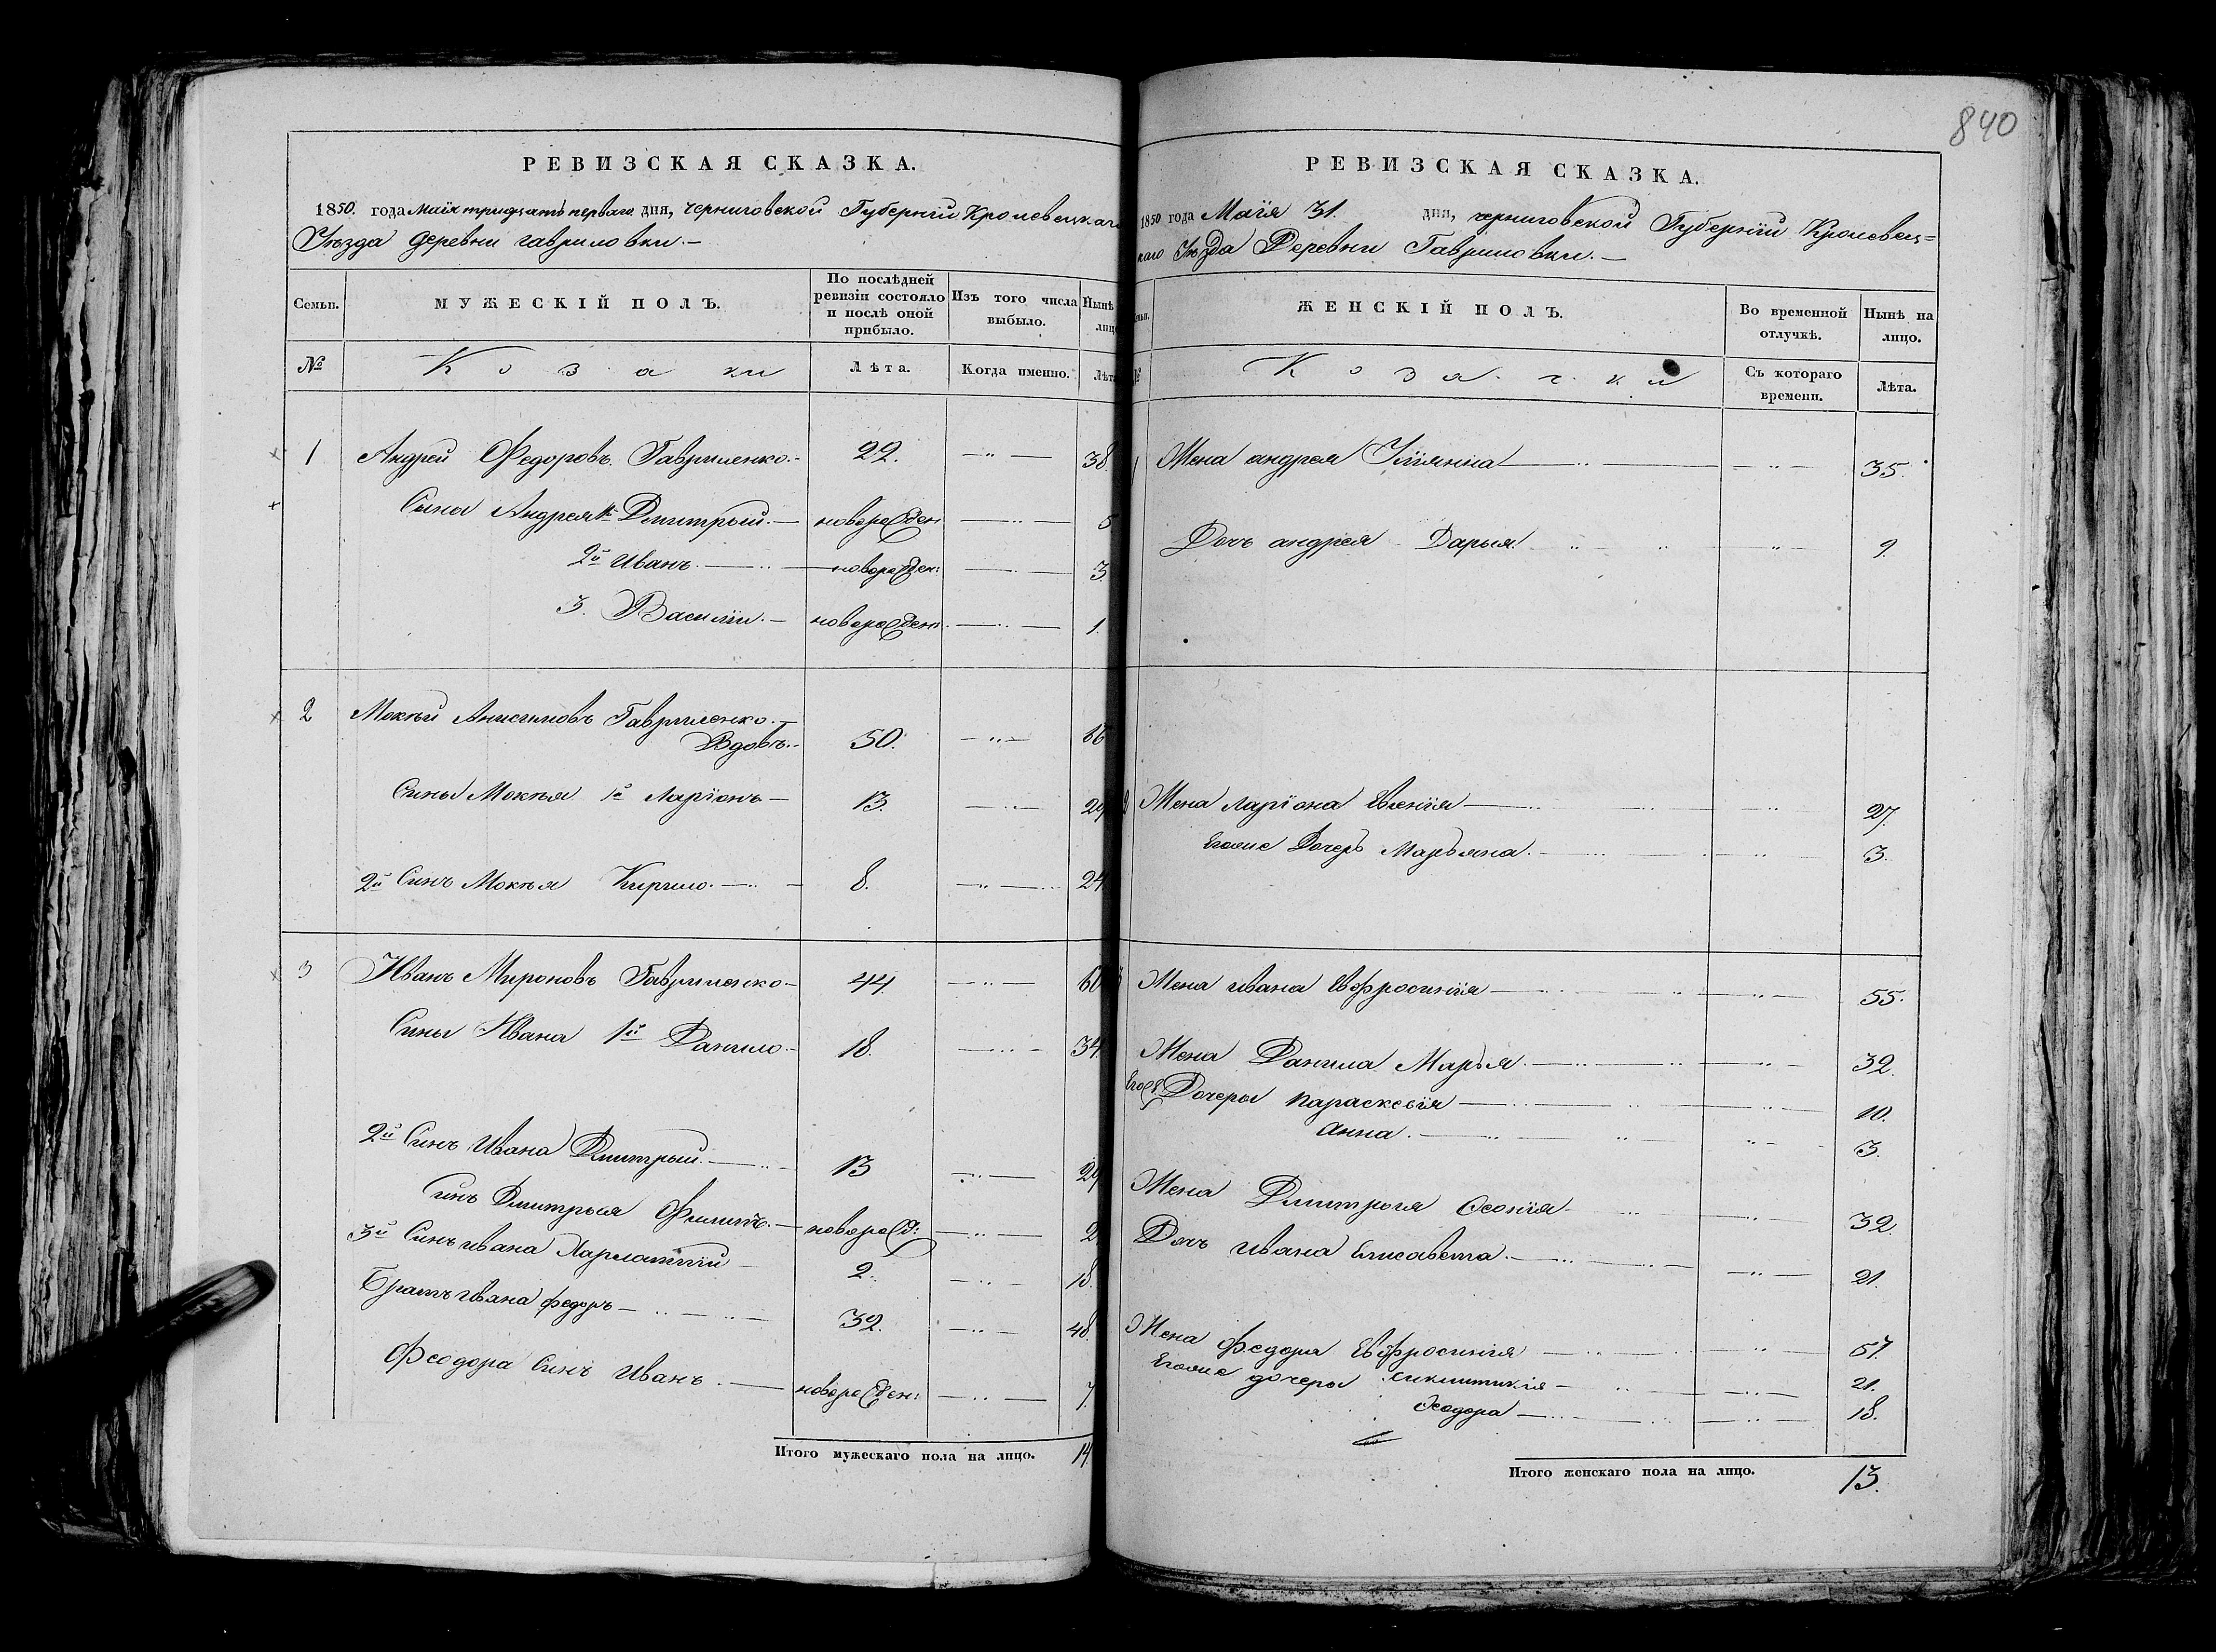 840
РЕВИЗСКАЯ СКАЗКА.
1850. года Маія тридцать перваго дня, Черниговской Губерніи Кролевецкаго
Уѣзда деревни гавриловки.
Семьи.
МУЖЕСКІЙ ПОЛЪ.
По послѣдней ревизіи состояло и послѣ оной прибыло.
Изъ того числа выбыло.
Нынѣ лицо
№
Козаки
Лѣта.
Когда именно.
Лѣта
1 Андрей Федоровъ Гавриленко. 22. 38.
Сыны Андрея 1й Дмитрый. новорожден 5
2й Иванъ. новорожден: 3.
3. Василій. новорожден: 1.
2 Мокѣй Анисимовъ Гавриленко.
Вдовъ. 50. 66
Сины Мокѣя 1й Ларіонъ 13. 29
2й Синъ Мокѣя Кирило. 8. 24.
3 Иванъ Мироновъ Гавриленко 44. 60
Сины Ивана 1й Данило 18. 34.
2й Синъ Ивана Дмитрый. 13 29
Синъ Дмитрыя Филипъ. новорожд: 2.
3й Синъ ивана Харлампій 2. 18.
Братъ ивана федоръ 32. 48.
Феодора Синъ Иванъ. новорожден: 7.
Итого мужескаго пола на лицо. 14.
РЕВИЗСКАЯ СКАЗКА.
1850 года Маія 31. дня, черниговской Губерніи Кролевец=
каго Уѣзда Деревни Гавриловки.
ЖЕНСКІЙ ПОЛЪ.
Во временной отлучкѣ.
Нынѣ на лицо.
№
Козачки
Съ котораго времени.
Лѣта.
1 Жена андрея Уліянна 35.
Дочъ андрея Дарыя. 9.
2 Жена Ларіона Евгенія 27.
Егоже Дочеръ Марьяна. 3.
3 Жена ивана Евфросинія 55.
Жена Данила Марья. 32.
Егоже Дочеры параскевія 10.
Анна. 3.
Жена Дмитрыя Ксенія 32.
Дочъ ивана Елисавета. 21.
Жена Федора Евфросинія
Егоже дочеры 21.
Феодора 18.
Итого женскаго пола на лицо. 13.